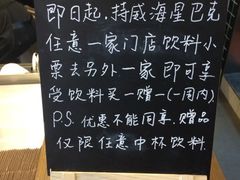 即日起，持威海星巴克
任意一家门店饮料小
票去另外一家即可享
受饮料买一赠一(一周内)
P.S. 优惠不能同享，赠品
仅限任意中杯饮料.